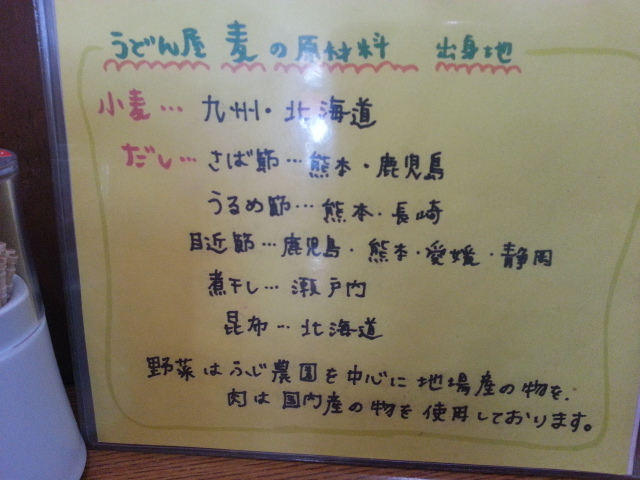 うどん屋 麦の原材料 出身地
小麦… 九州・北海道
だし… さば節…熊本・鹿児島
うるめ節…熊本・長崎
目近節…鹿児島・熊本・愛媛・静岡
煮干し…瀬戸内
昆布…北海道
野菜はふじ農園を中心に地場産の物を、
肉は国内産の物を使用しております。